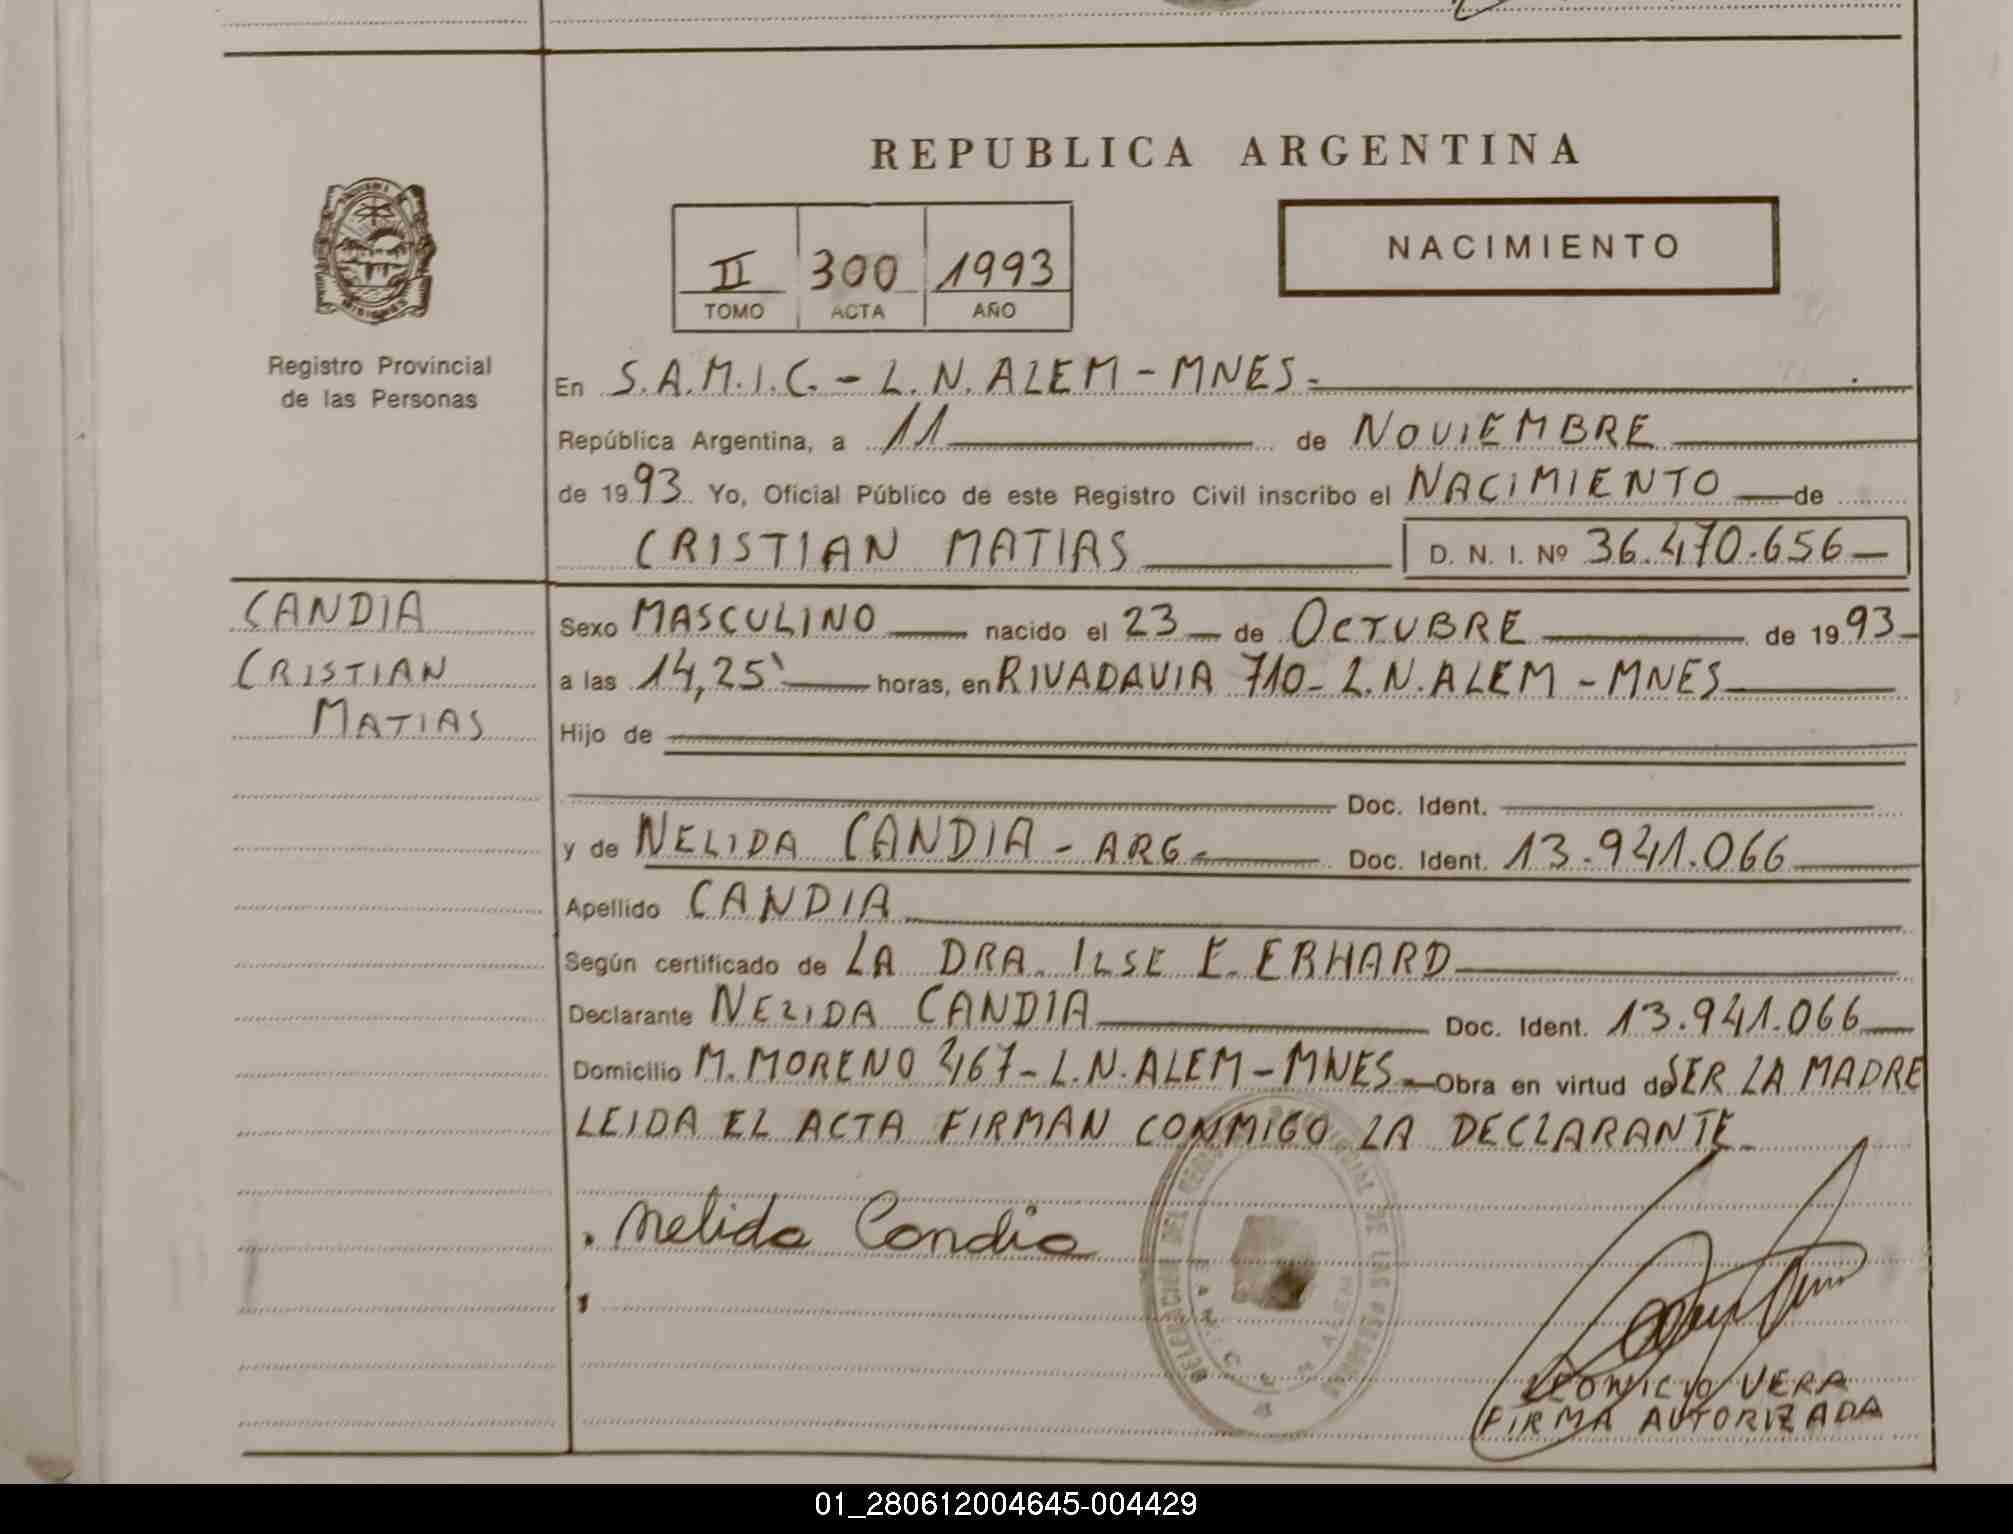 REPUBLICA ARGENTINA
NACIMIENTO
II 300 1993
TOMO ACTA AÑO
Registro Provincial
de las Personas
En S.A.M.I.C. - L.N. ALEM - MNES.
República Argentina, a 11 de NOVIEMBRE
de 1993 Yo, Oficial Público de este Registro Civil inscribo el NACIMIENTO de
CRISTIAN MATIAS D. N. I. Nº 36.470.656
CANDIA
CRISTIAN
MATIAS
Sexo MASCULINO nacido el 23 de OCTUBRE de 1993
a las 14,25' horas, en RIVADAVIA 710 - L.N. ALEM - MNES
Hijo de
Doc. Ident.
y de NELIDA CANDIA - ARG. Doc. Ident. 13.941.066
Apellido CANDIA
Según certificado de LA DRA. ILSE E. ERHARD
Declarante NELIDA CANDIA Doc. Ident. 13.941.066
Domicilio M. MORENO 467 - L.N. ALEM - MNES. Obra en virtud de SER LA MADRE
LEIDA EL ACTA FIRMAN CONMIGO LA DECLARANTE.
Nelida Candia
DELEGACION DEL DE LAS PERSONAS
LEONICIO VERA
FIRMA AUTORIZADA
01_280612004645-004429